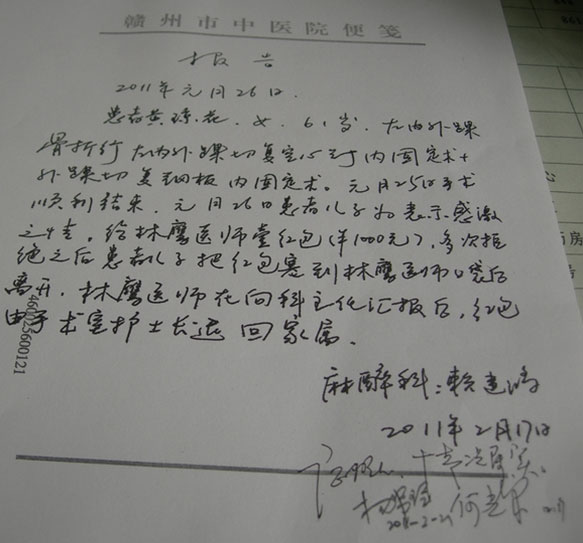 赣州市中医院便笺
报告
2011年元月26日.
患者黄琼花.女.61岁.左内外踝
骨折行左内外踝切复空心钉内固定术+
外踝切复钢板内固定术。元月25日手术
顺利结束.元月26日患者儿子为表示感激
之情,给林鹰医师壹红包(¥1000元),多次拒
绝之后患者儿子把红包塞到林鹰医师口袋后
离开.林鹰医师在向科主任汇报后,红包
由手术室护士长退回家属.
460023600121
麻醉科:赖
2011年2月17日